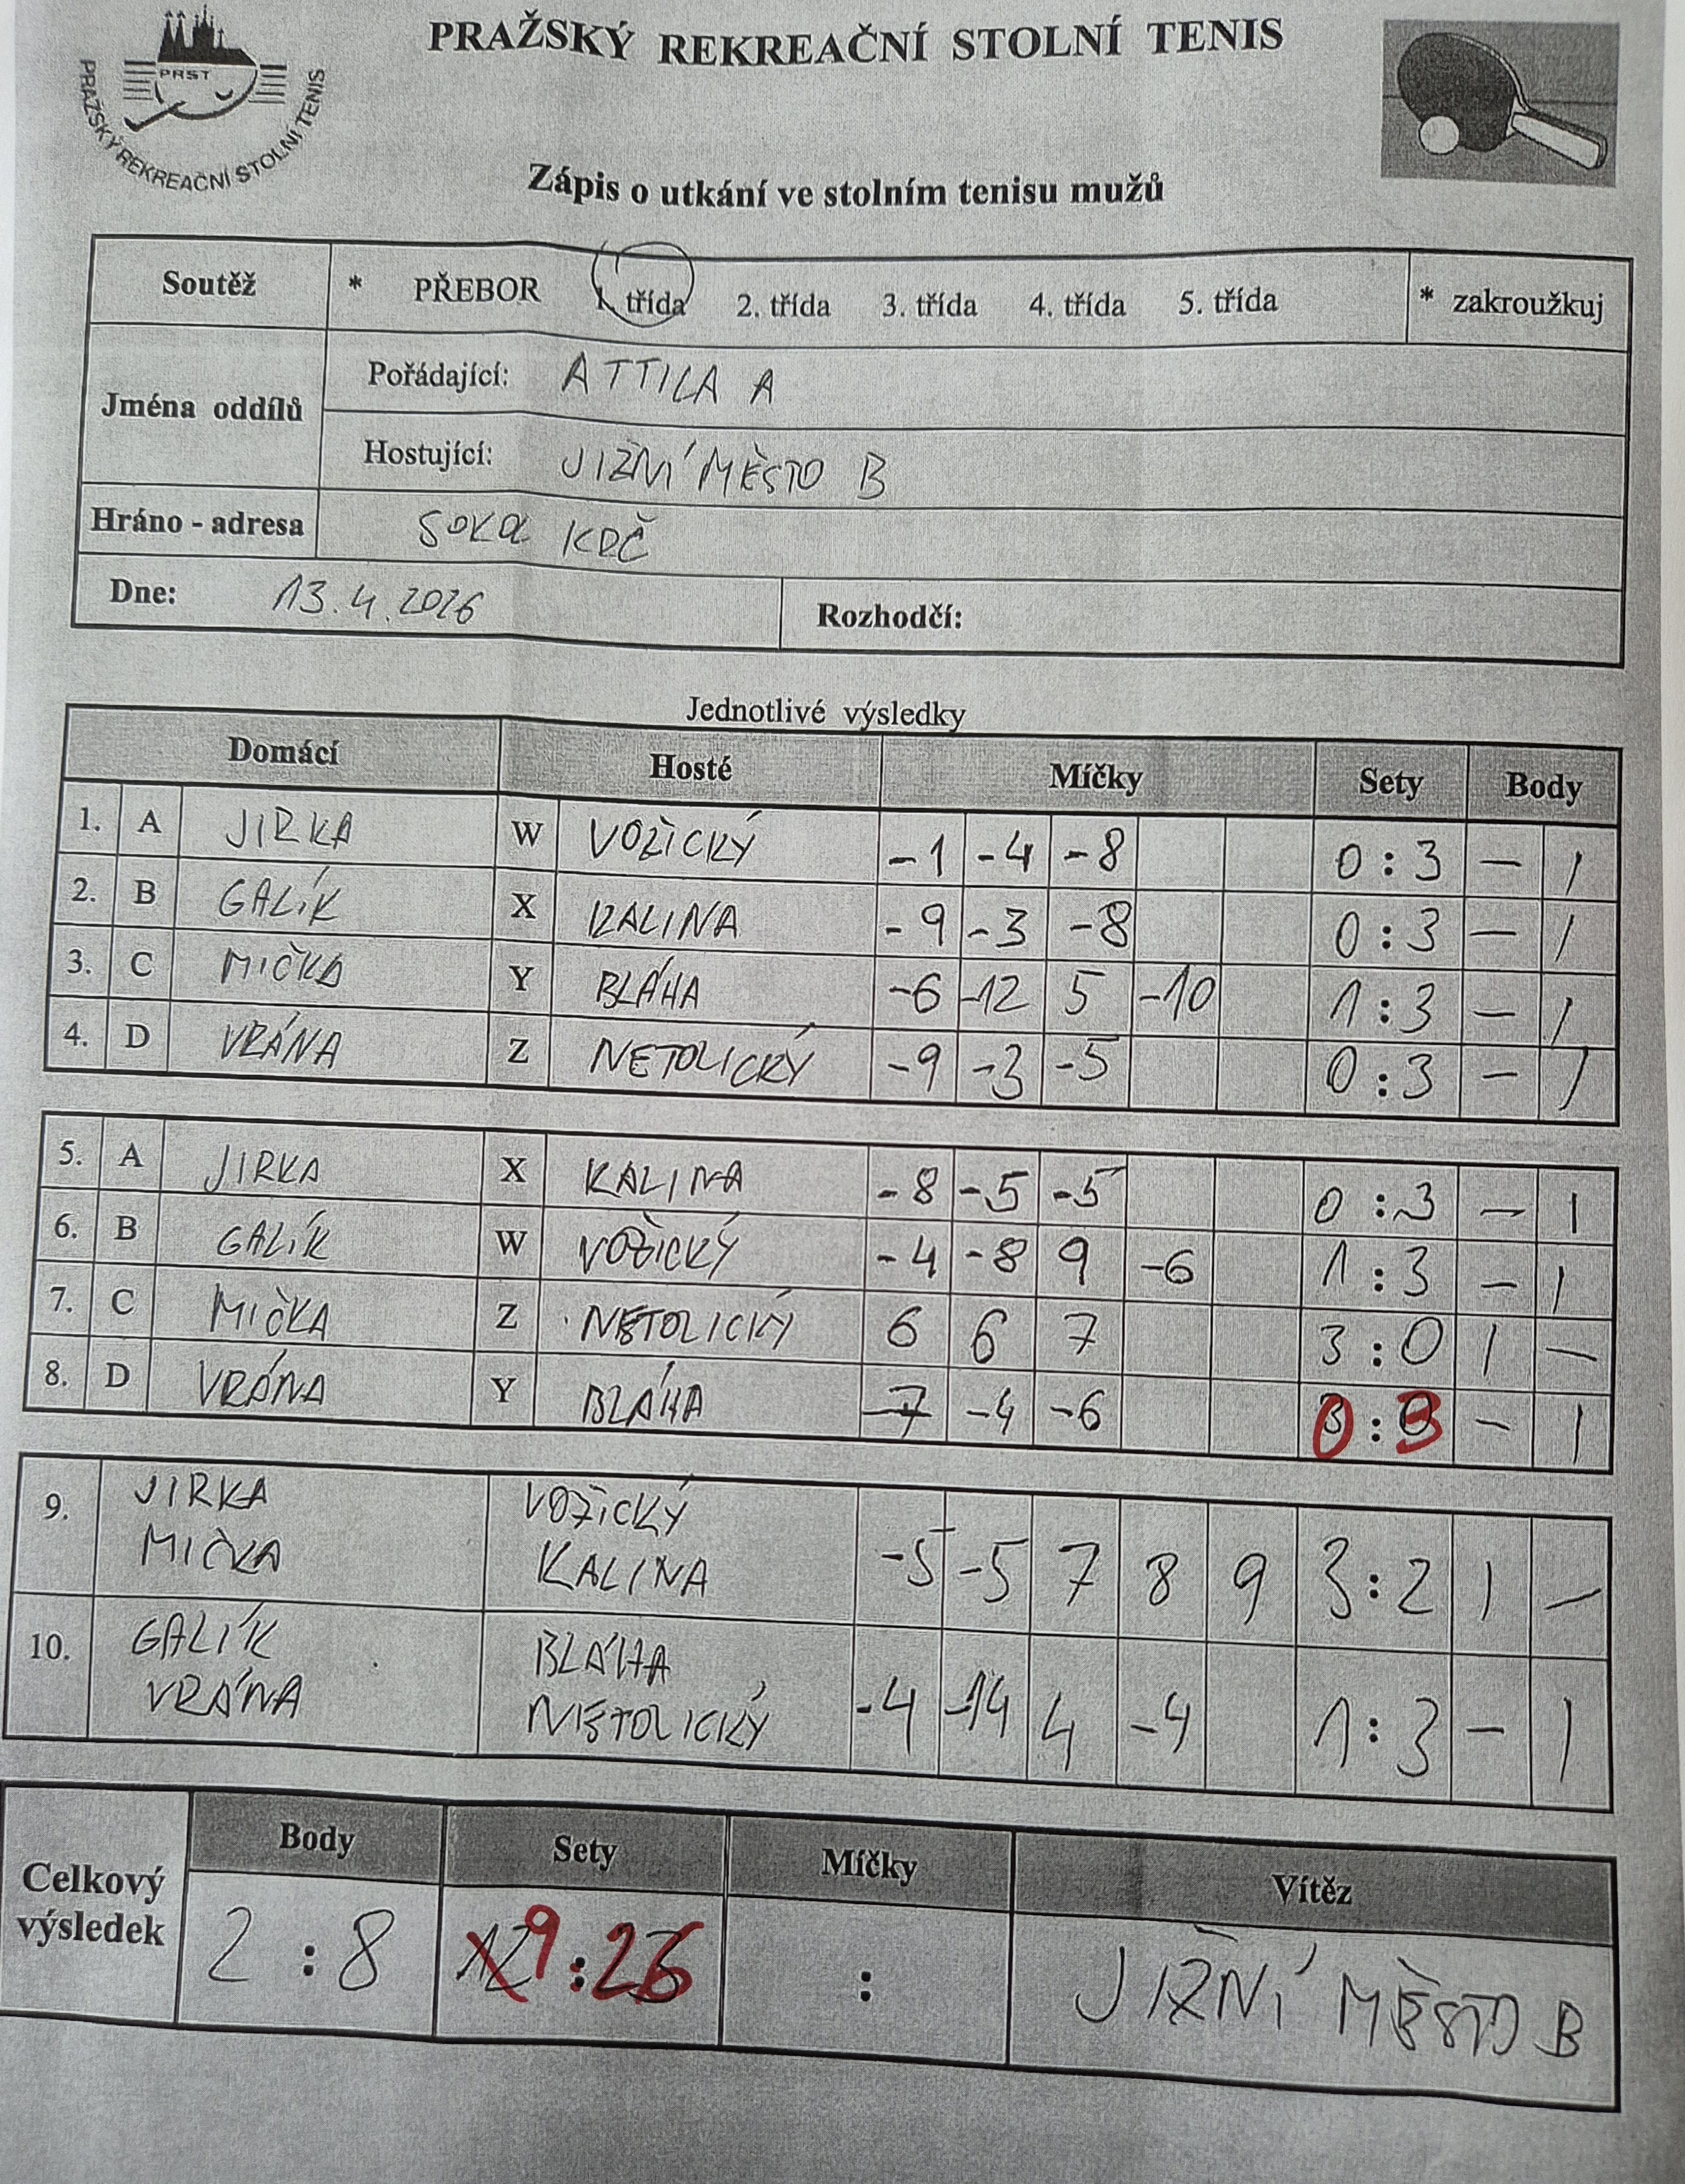 PRAŽSKÝ REKREAČNÍ STOLNÍ TENIS
PRST
PRAŽSKÝ REKREAČNÍ STOLNÍ TENIS
Zápis o utkání ve stolním tenisu mužů
Soutěž * PŘEBOR 1. třída 2. třída 3. třída 4. třída 5. třída * zakroužkuj
Jména oddílů
Pořádající: ATTILA A
Hostující: JIŽNÍ MĚSTO B
Hráno - adresa SOKOL KRČ
Dne: 13.4.2026 Rozhodčí:
Jednotlivé výsledky
Domácí Hosté Míčky Sety Body
1. A JIRKA W VOŽICKÝ -1 -4 -8 0 : 3 - 1
2. B GALÍK X KALINA -9 -3 -8 0 : 3 - 1
3. C MIČKA Y BLÁHA -6 -12 5 -10 1 : 3 - 1
4. D VRÁNA Z NETOLICKÝ -9 -3 -5 0 : 3 - 1
5. A JIRKA X KALINA -8 -5 -5 0 : 3 - 1
6. B GALÍK W VOŽICKÝ -4 -8 9 -6 1 : 3 - 1
7. C MIČKA Z NETOLICKÝ 6 6 7 3 : 0 1 -
8. D VRÁNA Y BLÁHA -7 -4 -6 0 : 3 - 1
9. JIRKA VOŽICKÝ
MIČKA KALINA -5 -5 7 8 9 3 : 2 1 -
10. GALÍK BLÁHA
VRÁNA NETOLICKÝ -4 -14 4 -4 1 : 3 - 1
Celkový výsledek
Body Sety Míčky Vítěz
2 : 8 12 9 : 26 : JIŽNÍ MĚSTO B